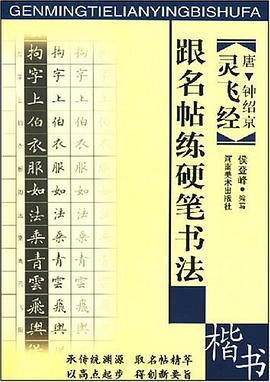 GENMINGTIELIANYINGBISHUFA
唐▼钟绍京
【灵飞经】
跟名帖练硬笔书法
侯登峰◆编写
河南美术出版社
拘字上伯衣服如法乘青雲飛輿
拘字上伯衣服如法乘青雲飛輿
楷书
承传统渊源 取名帖精萃
以高点起步 得创新要旨